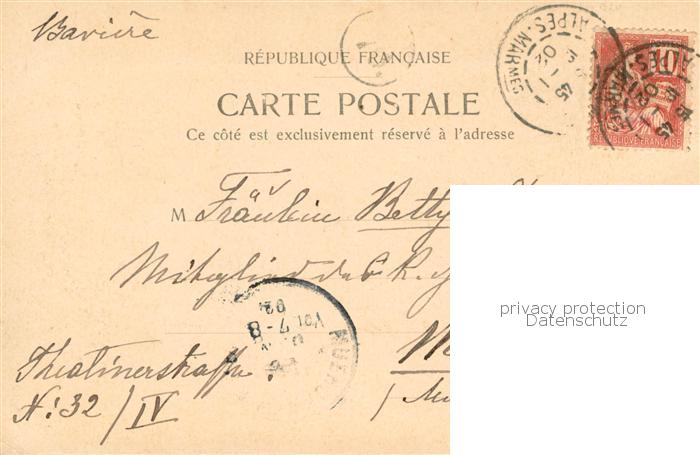 Bavière
RÉPUBLIQUE FRANÇAISE
CARTE POSTALE
Ce côté est exclusivement réservé à l'adresse
M Fräulein Betty
Mitglied des K.
Theatinerstrasse
N: 32/IV
ALPES-MARMES
10
RÉPUBLIQUE FRANÇAISE
VOR. 7-8
privacy protection
Datenschutz